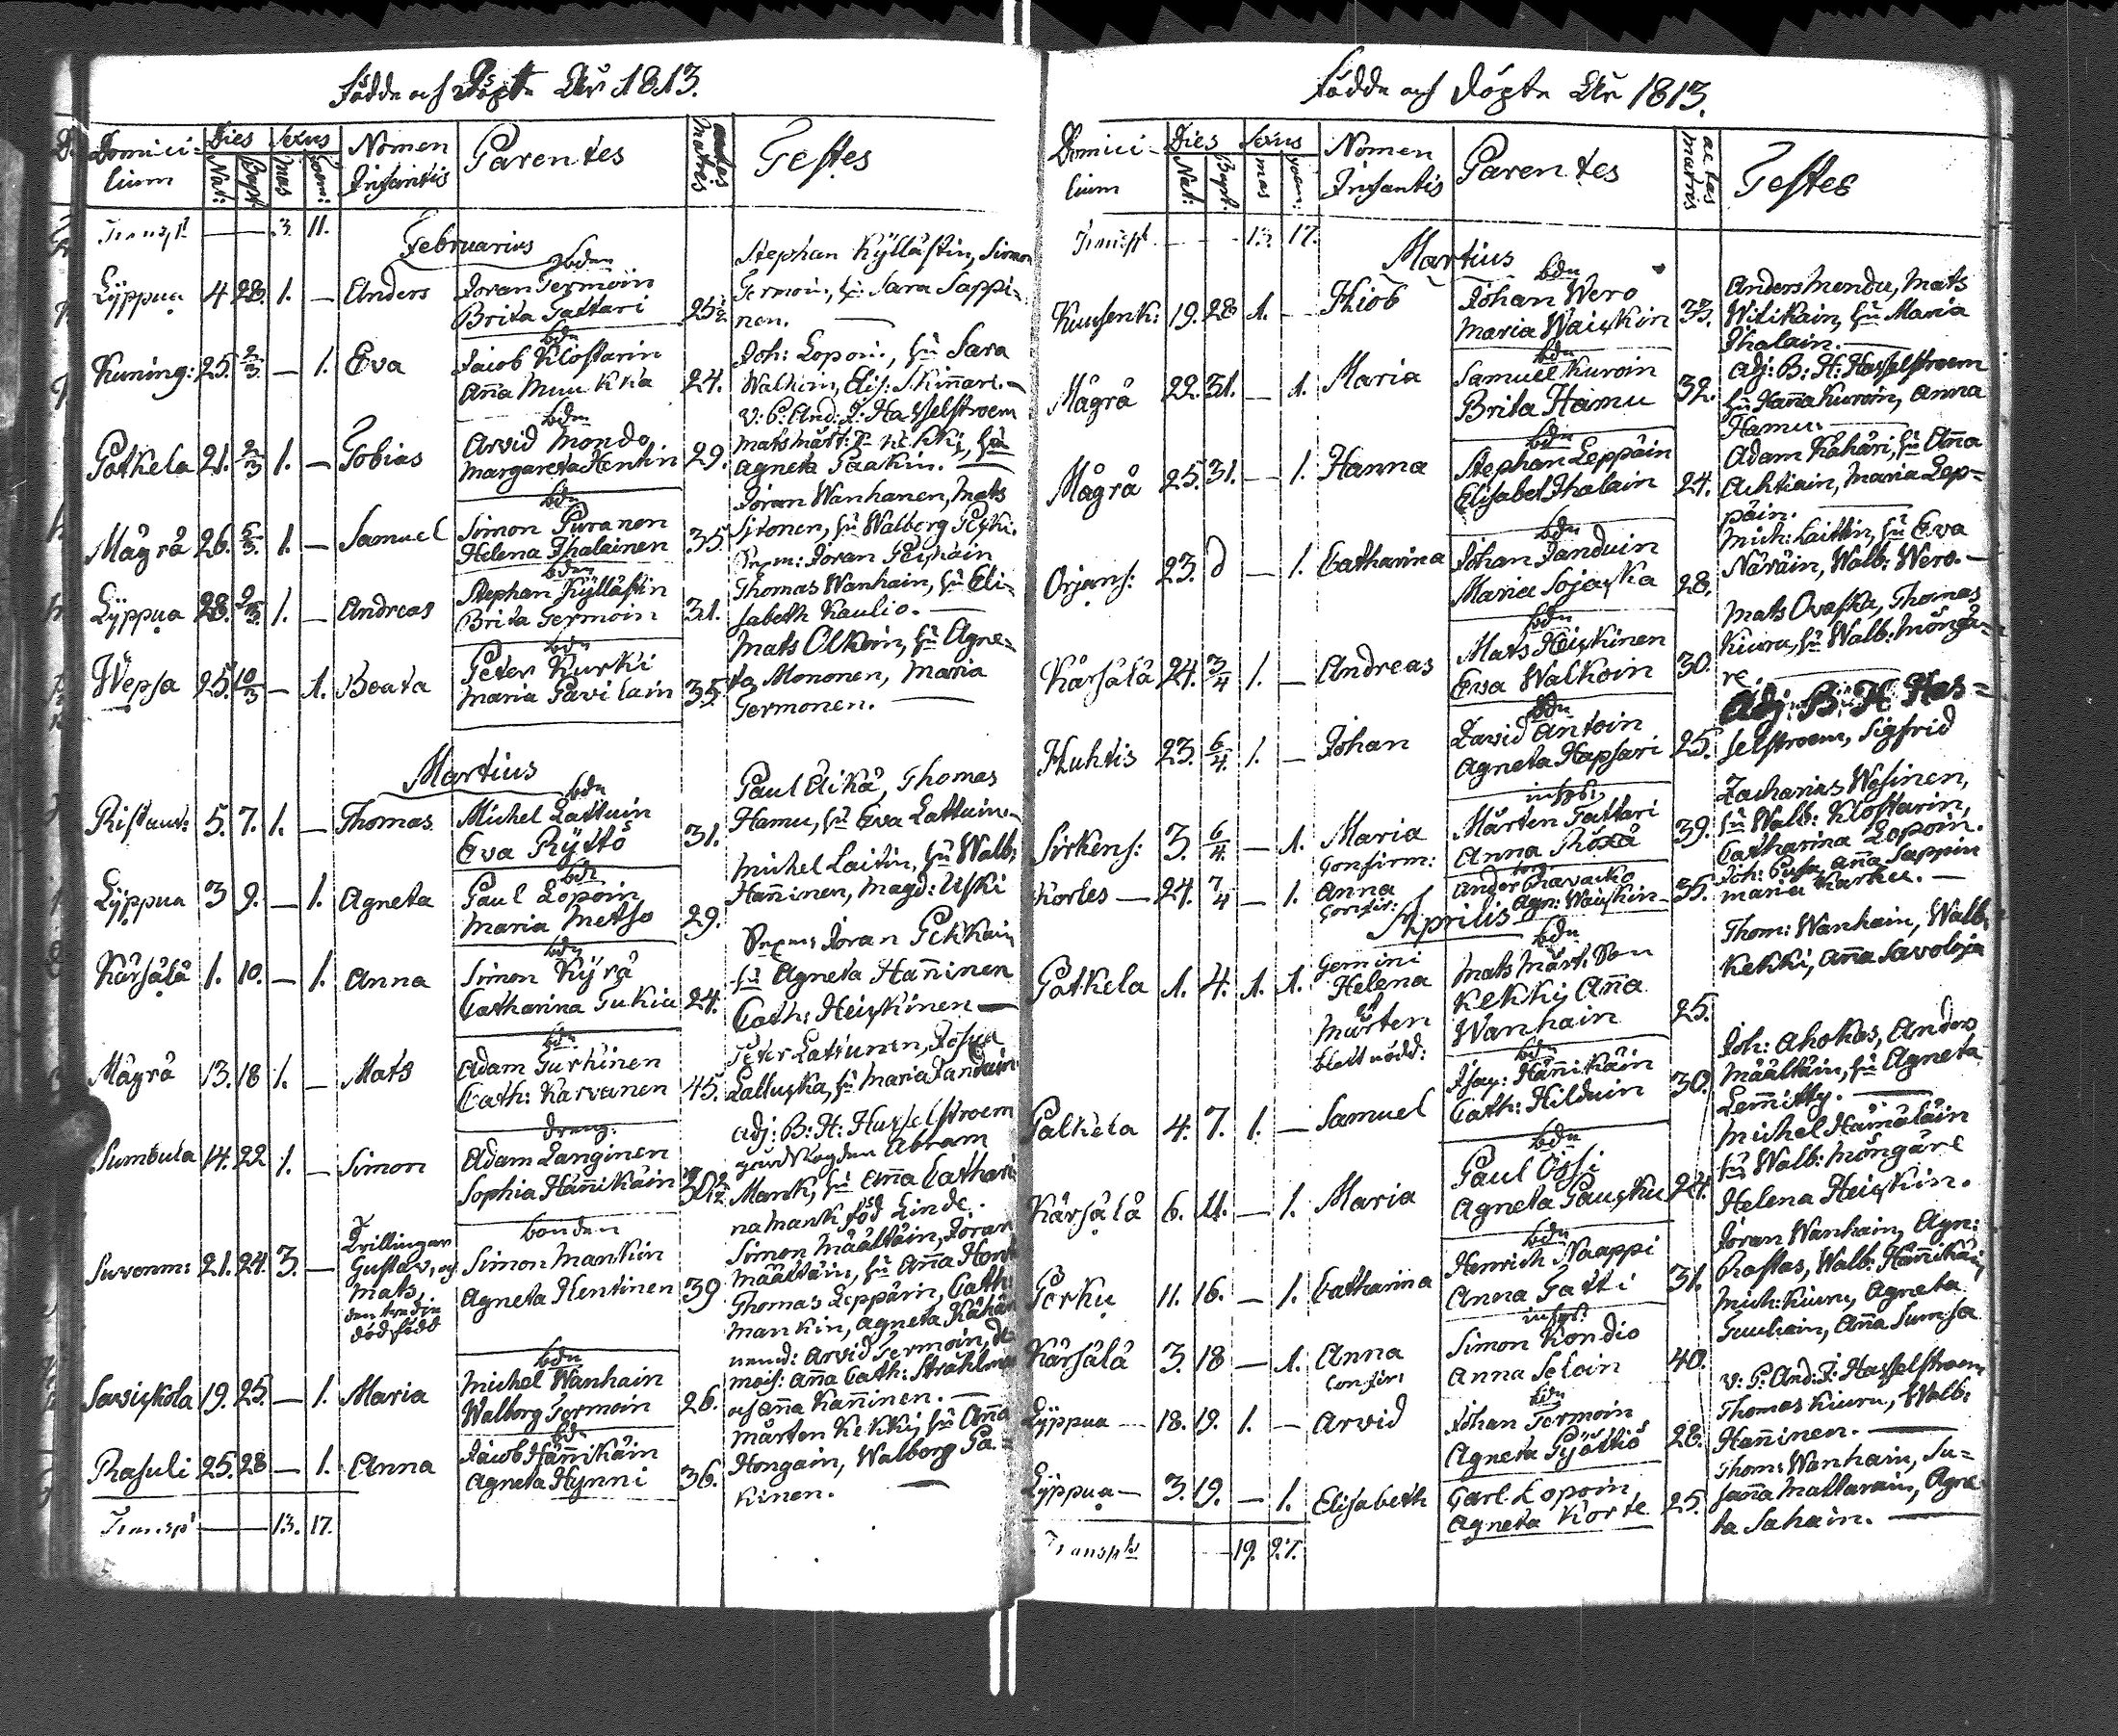 Födde och Döpte År 1813.
Domicilium Dies Nat: Bapt: Sexus mas foem: Nomen Infantis Parentes aetas matris Testes
Transpt 3. 11.
Februarius
Lyppua 4. 28. 1. — Anders
bdn
Jöran Termoin
Brita Tattari 25½
Stephan Kylläстin, Simon
Termoin, hu Sara Sappi-
nen.
Kuning: 25. 2/3. — 1. Eva
bdn
Jacob Klostarin
Anna Muukka 24.
Joh: Lopoin, hu Sara
Walkoin, Elis: Skinnari.
Patkela 21. 2/3 1. — Tobias
bdn
Arvid Mondo
Margareta Hentin 29.
v: P: And: J: Hasselstroem
Mats Mårt: Sn Kekki, hu
Agneta Paakin.
Mågrå 26. 5/3. 1. — Samuel
bdn
Simon Puranen
Helena Ihalainen 35.
Jöran Wanhanen, Mats
Sitonen, hu Walborg Peski.
Lyppua 28. 9/3. 1. — Andreas
bdn
Stephan Kyllästin
Brita Termoin 31.
Jöran Peijnäin
Thomas Wanhain, hu Eli-
sabeth Kaulio.
Wepsa 25. 10/3 — 1. Beata
bdn
Peter Kurki
Maria Pavilain 35.
Mats Olkoin, hu Agne-
ta Mononen, Maria
Termonen.
Martius
Ristaut: 5. 7. 1. — Thomas
bdn
Michel Lattuin
Eva Ryttö 31.
Paul Eikå, Thomas
Hamu, hu Eva Lattuin.
Lyppua 3 9. — 1. Agneta
bdn
Paul Lopoin
Maria Metso 29.
Michel Laitin, hu Walb:
Hanninen, Magd: Uski
Kårsälä 1. 10. — 1. Anna
bdn
Simon Kyrå
Catharina Tukia 24.
Jöran Pekkain
hu Agneta Hanninen
Cath: Heiskinen
Mågrå 13. 18 1. — Mats
bdn
Adam Turkinen
Cath: Karvanen 45.
Peter Lattunen, Josua
Lattuska, hu Maria Janduin
Sumbula 14. 22 1. — Simon
dräng.
Adam Langinen
Sophia Hännikäin
Adj: B: H: Hasselstroem
gårdsfogden Abram
Mank, hu Anna Cathari-
na Mank född Linde.
Suvenm: 21. 24. 3. —
Trillingar
Gustav, og
Mats,
den tredje
dödfödd
bonden
Simon Mankin
Agneta Hentinen 39
Simon Määttäin, Jöran
Määttäin, hu Anna Hent
Thomas Leppäin, Cath:
Mankin, Agneta Kähär
Arvid Termoin, de
mois: Anna Cath: Strahlman
och Anna Hanninen.
Saviskola 19. 25. — 1. Maria
bdn
Michel Wanhain
Walborg Termoin 26.
Rasuli 25. 28 — 1. Anna
bdn
Jacob Hännikäin
Agneta Hynni 36.
Mårten Kekki, hu Anna
Hongain, Walborg Pa-
kinen.
Transpt 13. 17.
Födde och Döpte År 1813.
Domicilium Dies Nat: Bapt: Sexus mas foem: Nomen Infantis Parentes aetas matris Testes
Transpt 13. 17.
Martius
Kuusenk: 19. 28 1. — Hiob
bdn
Johan Wero
Maria Waiskin 33.
Anders Mendu, Mats
Witikain, hu Maria
Ihalain.
Mågrå 22. 31. — 1. Maria
bdn
Samuel Kuroin
Brita Hamu 32.
Adj: B: H: Hasselstroem
hu Hanna Kuroin, Anna
Hamu.
Mågrå 25. 31. — 1. Hanna
bdn
Stephan Leppäin
Elisabet Ihalain 24.
Adam Kähäri, hu Anna
Ahtiain, Maria Lep-
päin.
Orjans: 23. — 1. Catharina
bdn
Johan Janduin
Maria Sojaska 28.
Mich: Laitin, hu Eva
Näräin, Walb: Wero.
Kårsälä 24. 3/4 1. — Andreas
bdn
Mats Heiskinen
Eva Walkoin 30.
Mats Ovaska, Thomas
Kiuru, hu Walb: Möngä-
re.
Huhtis 23. 6/4. 1. — Johan
bdn
David Antoin
Agneta Hapsari 25.
Adj: B: H Has-
selstroem, Sigfrid
Sirkens: 3. 6/4. — 1. Maria
Confirm:
Mårten Tattari
Anna Råxå 39.
Zacharias Wesinen,
hu Walb: Klostarin,
Catharina Lopoin.
Kortes — 24. 7/4 — 1. Anna
Confir:
Ander Chavaiko
Agn: Waiskin 35.
Joh: Pusa, Anna Sappin
Maria Karku.
Aprilis
Patkela 1. 4. 1. 1.
Gemini
Helena
et
Mårten
bdn
Mats Mårt: Son
Kekki, Anna
Wanhain 25.
Thom: Wanhain, Walb:
Kekki, Anna Savoloja
Patkela 4. 7. 1. — Samuel
bdn
Isac: Hännikäin
Cath: Hilduin 30.
Joh: Ahokas, Anders
Määttäin, hu Agneta
Lemmitty.
Kårsälä 6. 11. — 1. Maria
bdn
Paul Ossi
Agneta Pausku 24.
Michel Hämäläin
hu Walb: Möngäre
Helena Heiskin.
Porku 11. 16. — 1. Catharina
bdn
Henrich Naappi
Anna Tatti 31.
Jöran Wanhain, Agn:
Rastas, Walb: Hännikäi
Kårsälä 3. 18 — 1. Anna
Confir:
Simon Kondio
Anna Seloin 40.
Mich: Kiuru, Agneta
Tuuhain, Anna Sumsa
Lyppua — 18. 19. 1. — Arvid
bdn
Johan Termoin
Agneta Pyöttiö 28.
v: P: And: J: Hasselstroem
Thomas Kiuru, Walb:
Hanninen.
Lyppua — 3. 19. — 1. Elisabeth
Carl Lopoin
Agneta Korte 25.
Thom: Wanhain, Su-
sanna Mattarain, Agne-
ta Sahain.
Transpt 19. 27.